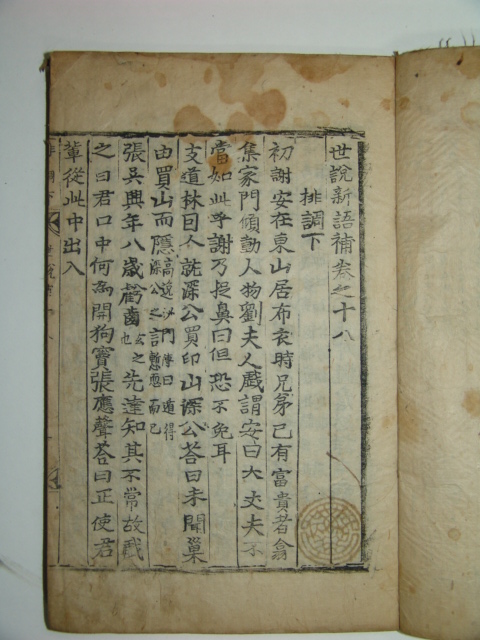 世說新語補卷之十八
排調下
初謝安在東山居布衣時兄弟已有富貴者翕
集家門傾動人物劉夫人戲謂安曰大丈夫不
當如此乎謝乃捉鼻曰但恐不免耳
支道林因人就深公買印山深公答曰未聞巢
由買山而隱高逸沙門傳曰遁得深公之言慙恧而已
張吳興年八歲虧齒玄之也先達知其不常故戲
之曰君口中何爲開狗竇張應聲答曰正使君
輩從此中出入